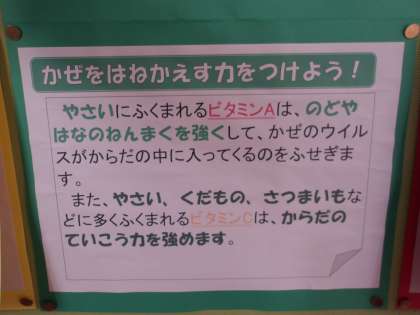 かぜをはねかえす力をつけよう！
やさいにふくまれるビタミンAは、のどや
はなのねんまくを強くして、かぜのウイル
スがからだの中に入ってくるのをふせぎま
す。
また、やさい、くだもの、さつまいもな
どに多くふくまれるビタミンCは、からだの
ていこう力を強めます。